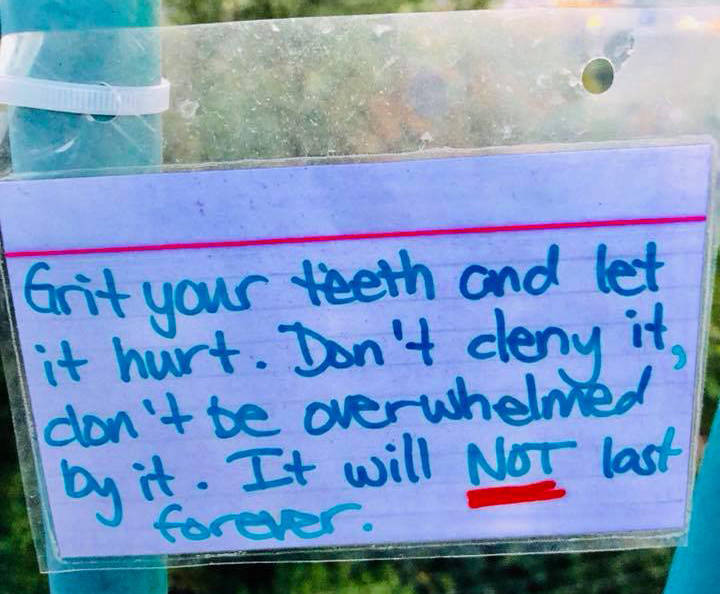 Grit your teeth and let
it hurt. Don't deny it,
don't be overwhelmed
by it. It will NOT last
forever.